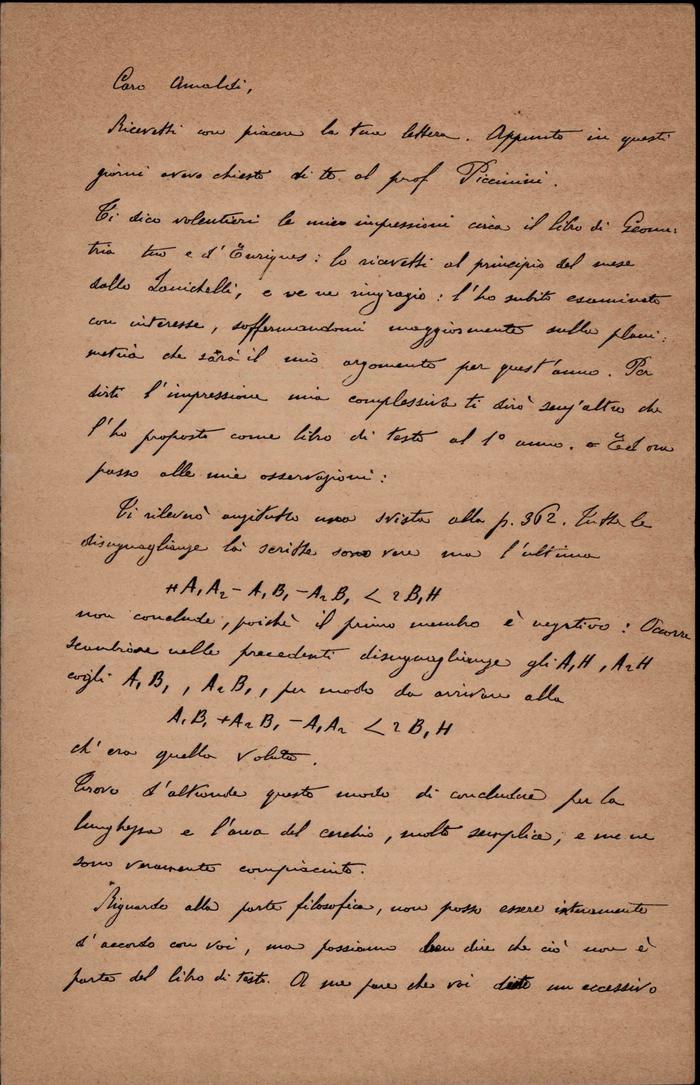 Caro Amaldi,
Ricevetti con piacere la tua lettera. Appunto in questi
giorni avevo chiesto di te al prof Piccinini.
Ti dico volentieri le mie impressioni circa il libro di Geome:
tria tuo e d'Enriques: lo ricevetti al principio del mese
dallo Zanichelli, e ve ne ringrazio: l'ho subito esaminato
con interesse, soffermandomi maggiormente sulla plani:
metria che sarà il mio argomento per quest'anno. Per
dirti l'impressione mia complessiva ti dirò senz'altro che
l'ho proposto come libro di testo al 1º anno. Ed ora
passo alle mie osservazioni:
Ti rileverò anzitutto una svista alla p. 362. Tutte le
disuguaglianze là scritte sono vere ma l'ultima
+ A₁A₂ - A₁B₁ - A₂B₁ < 2B₁H
non conclude, poichè il primo membro è negativo! Occorre
scambiare nelle precedenti disuguaglianze gli A₁H, A₂H
cogli A₁B₁, A₂B₁, per modo da arrivare alla
A₁B₁ + A₂B₁ - A₁A₂ < 2B₁H
ch'era quella voluta.
Trovo d'altronde questo modo di concludere per la
lunghezza e l'area del cerchio, molto semplice, e me ne
sono veramente compiaciuto.
Riguardo alla parte filosofica, non posso essere interamente
d'accordo con voi, ma possiamo ben dire che ciò non è
parte del libro di testo. A me pare che voi diate un eccessivo